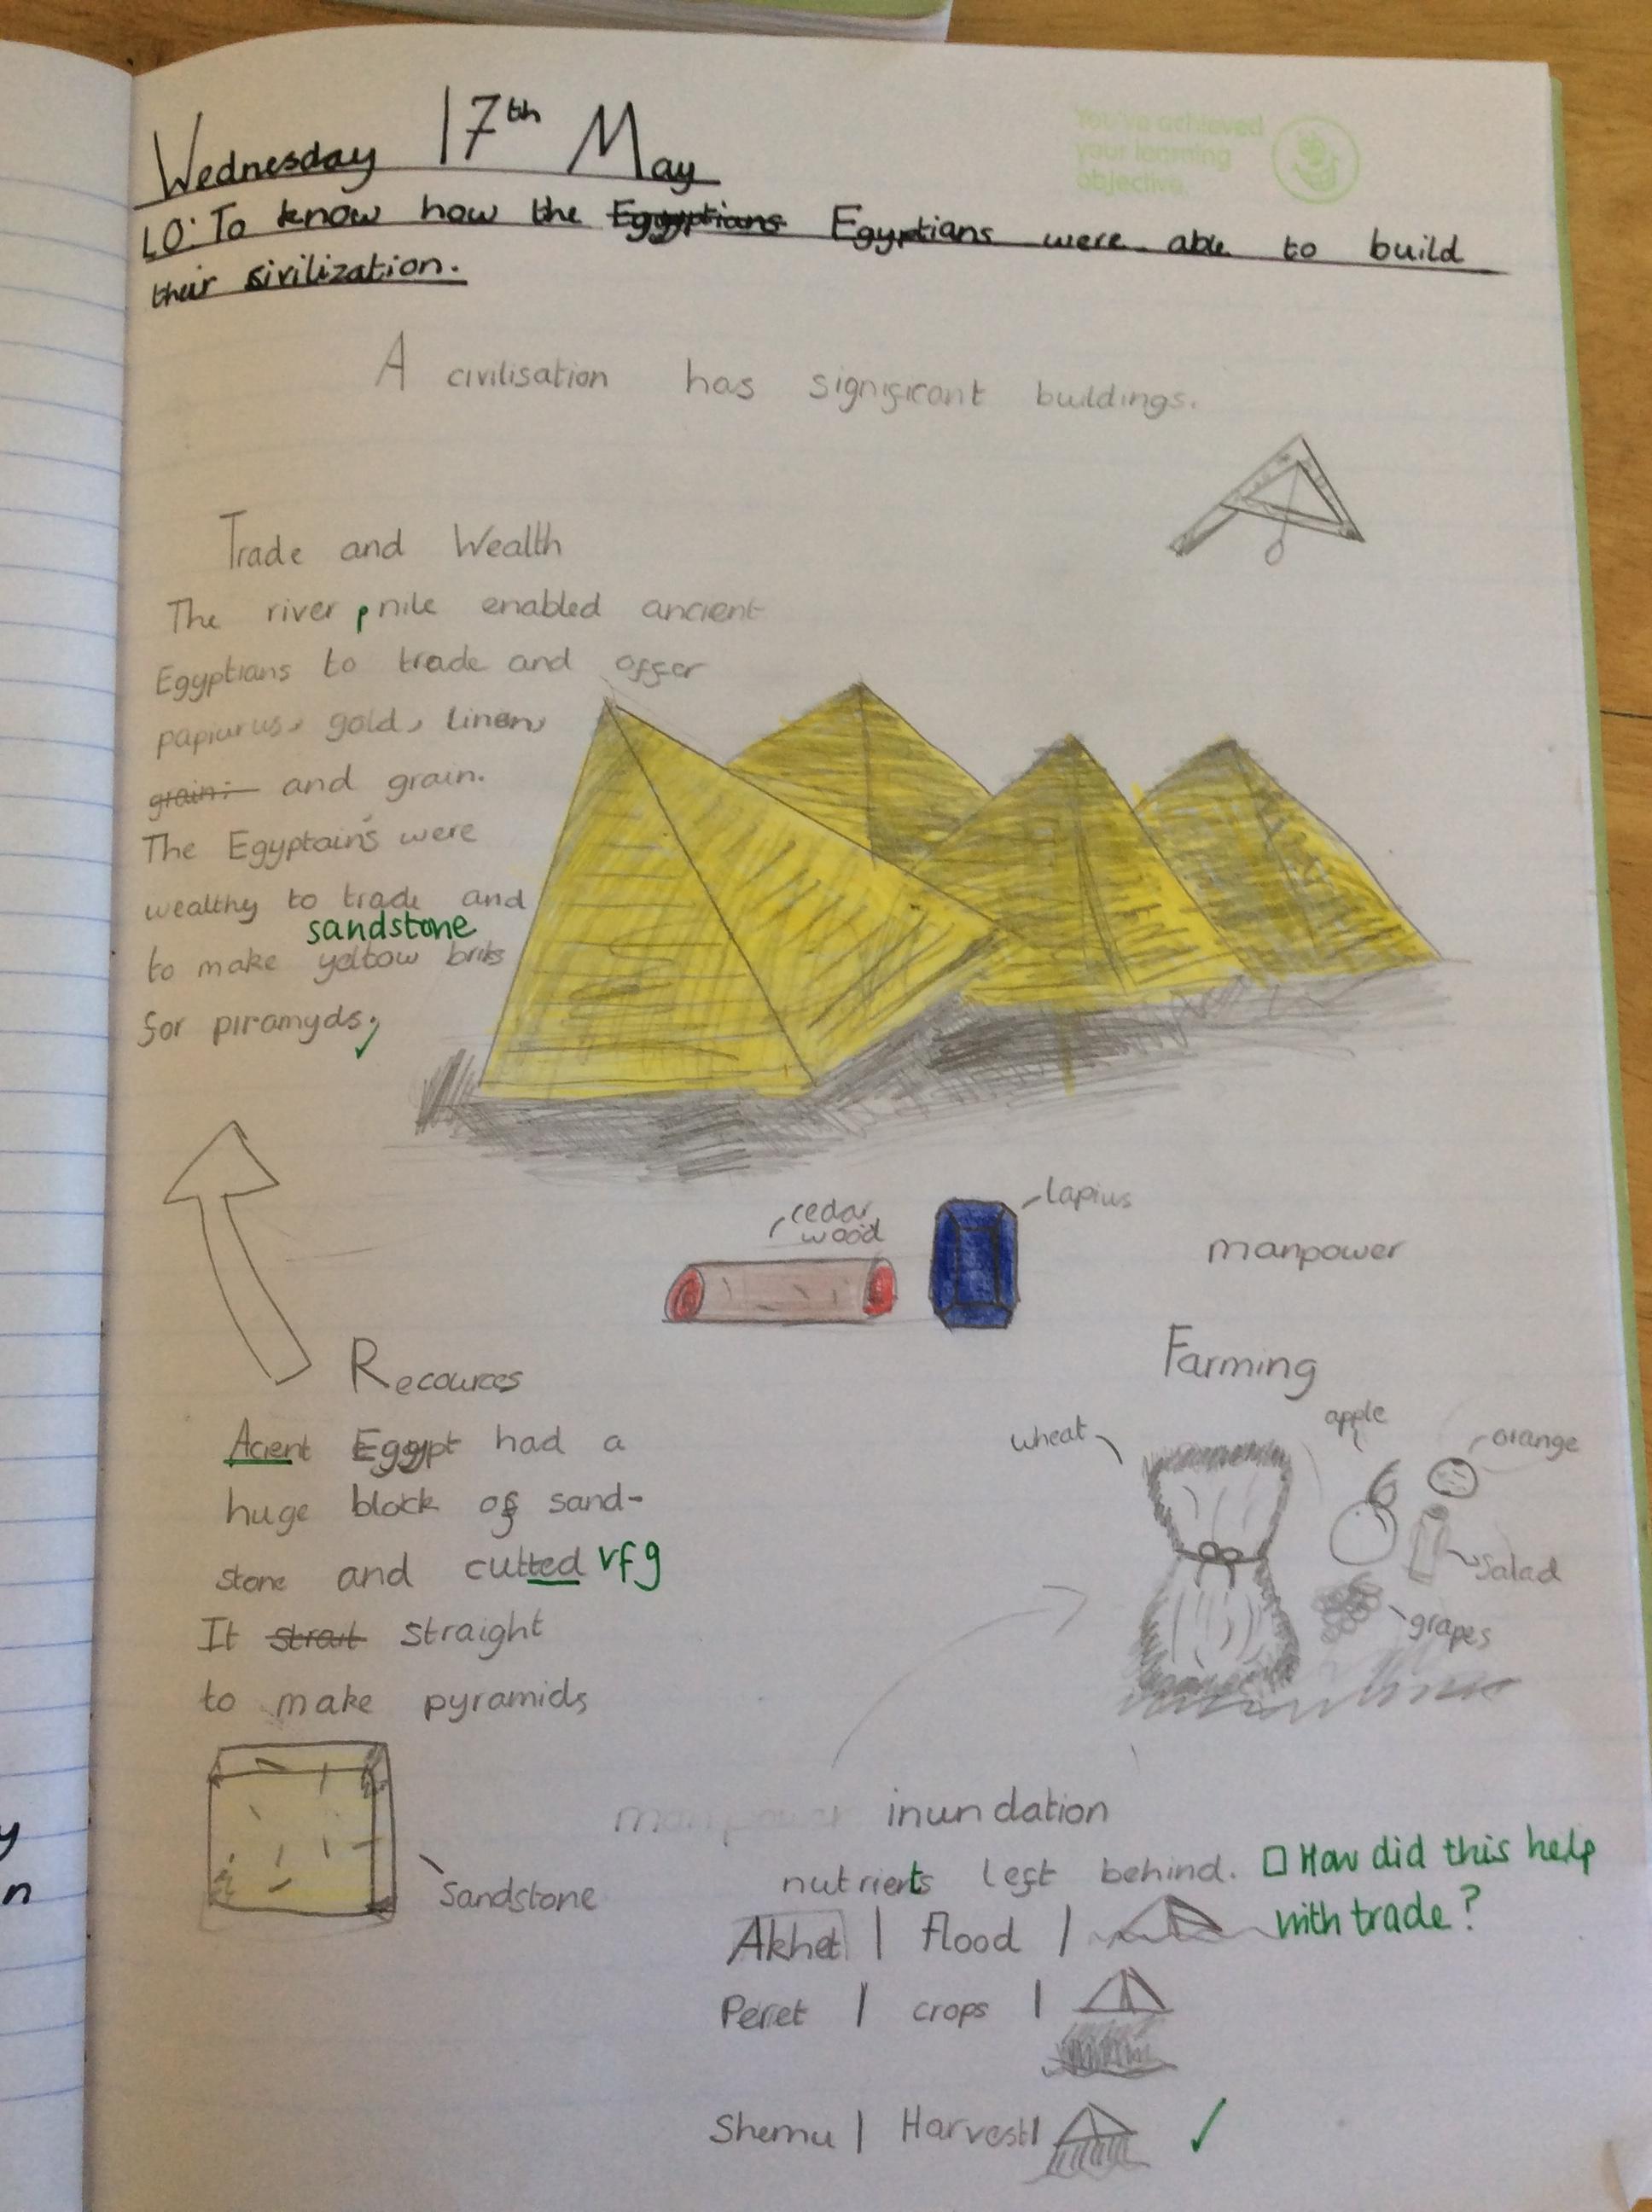 Wednesday 17th May
LO: To know how the Eggyptians Egyptians were able to build
their sivilization.
You've achieved
your learning
objective.
A civilisation has significant buildings.
Trade and Wealth
The river nile enabled ancient
Egyptians to trade and offer
papiurus, gold, linen,
grain: and grain.
The Egyptain's were
wealthy to trade and
sandstone
to make yellow briks
for piramyds.
cedar
wood
lapius
manpower
Recources
Acient Egypt had a
huge block of sand-
stone and cutted vfg
It strait straight
to make pyramids
Sandstone
Farming
wheat
apple
orange
Salad
grapes
manpower inundation
nutrients left behind. How did this help
with trade?
Akhet | flood |
Peret | crops |
Shemu | Harvest |
y
n